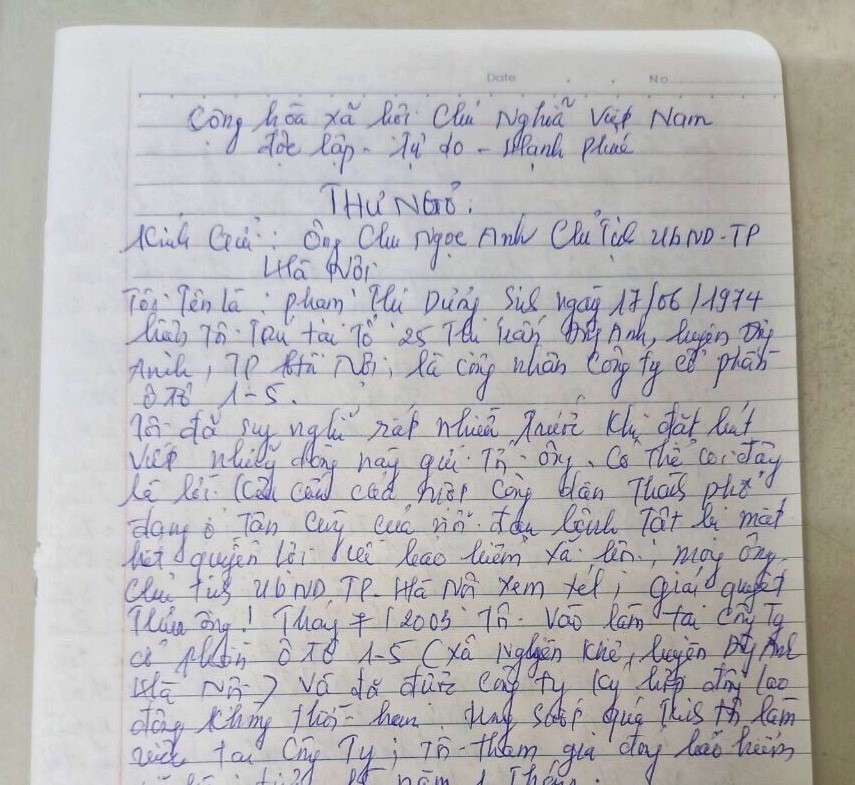 Date No
Cộng hòa xã hội Chủ Nghĩa Việt Nam
Độc lập - Tự do - Hạnh phúc
THƯ NGỎ.
Kính Gửi: Ông Chu Ngọc Anh Chủ Tịch UbND-TP
Hà Nội
Tôi Tên là: phạm Thị Dũng Sinh ngày 17/06/1974
hiện Tôi Tại Tổ 25 Thị trấn Đông Anh, huyện Đông
Anh, TP Hà Nội, là công nhân Công ty cổ phần
Ô Tô 1-5.
Tôi đã suy nghĩ rất nhiều trước khi đặt bút
viết những dòng này gửi Tới ông. Có thể coi đây
là lời cầu cứu của một công dân Thành phố
đang ở Tận cùng của nỗi đau bệnh Tật bị mất
hết quyền lợi về bảo hiểm xã hội, mong ông
Chủ tịch UbND TP. Hà Nội xem xét, giải quyết
Thưa ông! Tháng 7/2003 Tôi vào làm tại Công Ty
cổ phần Ô Tô 1-5 (xã Nguyên Khê, huyện Đông Anh
Hà Nội) và đã được công ty ký hợp đồng lao
động không thời hạn. Trong suốt quá trình tôi làm
việc tại Công Ty, Tôi tham gia đóng bảo hiểm
năm 1 Tháng.